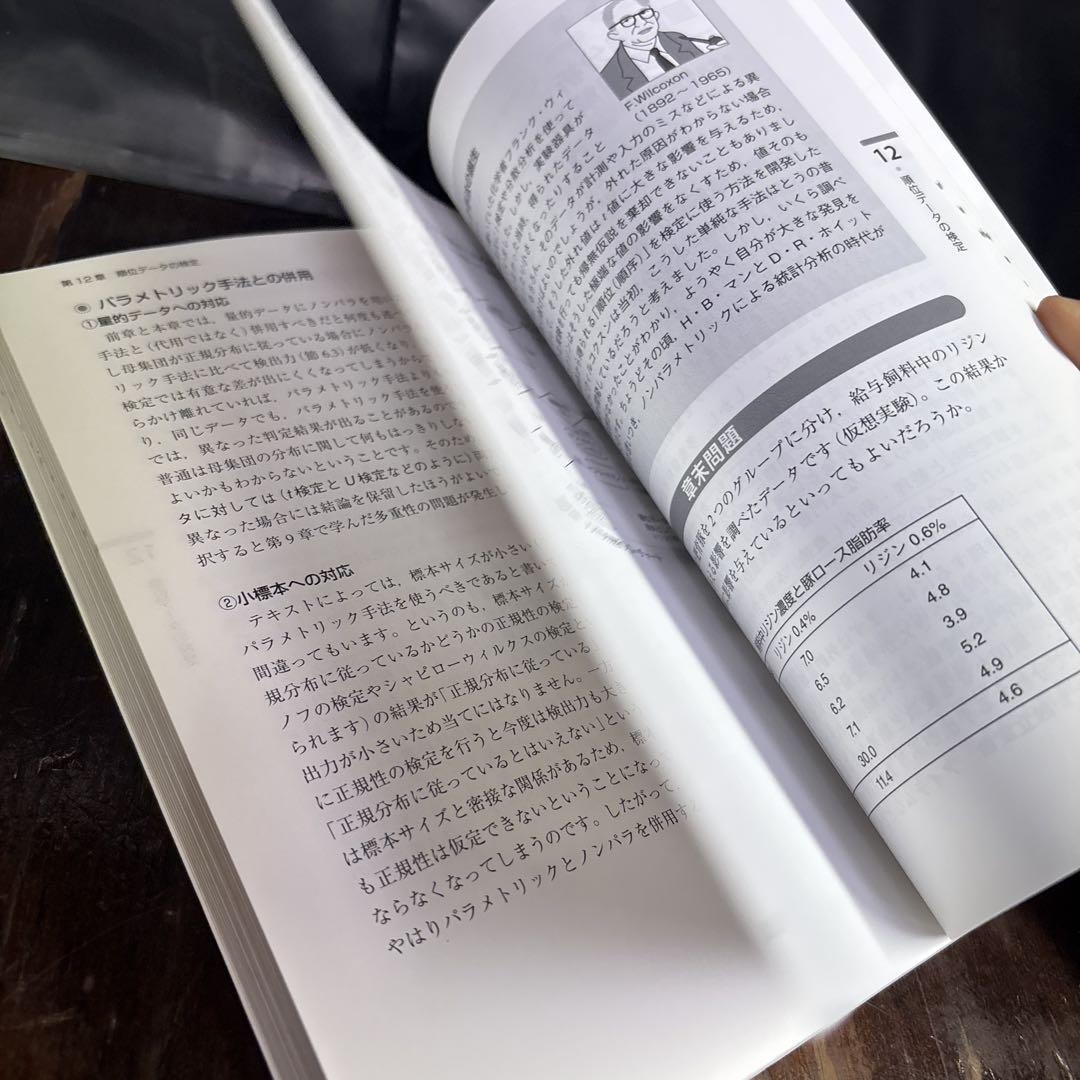 第12章 順位データの検定
◉ パラメトリック手法との併用
①量的データへの対応
前章と本章では，量的データにノンパラを用い
手法と（代用ではなく）併用すべきだと何度も述
し母集団が正規分布に従っている場合にノンパ
リック手法に比べて検出力（節6.3）が低くな
検定では有意な差が出にくくなってしまうから
らかけ離れていれば，パラメトリック手法よ
り，同じデータでも，パラメトリック手法を
では，異なった判定結果が出ることがあるの
普通は母集団の分布に関して何もはっきりし
よいかもわからないということです。そのため
タに対しては（t検定とU検定などのように）
異なった場合には結論を保留したほうがよい
択すると第9章で学んだ多重性の問題が発生し
②小標本への対応
テキストによっては，標本サイズが小さい
パラメトリック手法を使うべきであると書い
間違ってもいます。というのも，標本サイズ
規分布に従っているかどうかの正規性の検定
ノフの検定やシャピローウィルクスの検定と
られます）の結果が「正規分布に従っている
出力が小さいため当てにはなりません。一方
に正規性の検定を行うと今度は検出力も大き
「正規分布に従っているとはいえない」とい
は標本サイズと密接な関係があるため，標
も正規性は仮定できないということになっ
ならなくなってしまうのです。したがって，
やはりパラメトリックとノンパラを併用す
F.Wilcoxon
(1892～1965)
化学者フランク・ウィ
検定や分散分析を使って
しかし，実験器具が
さなかったり，得られたデータ
そのデータが計測や入力のミスなどによる異
のでしょうが，外れた原因がわからない場合
した外れ値は t 値に大きな影響を与えるため，
行っても帰無仮説を棄却できないこともありまし
そうした極端な値の影響をなくすため，値そのも
られる「順位（順序）」を検定に使う方法を開発した
コクソンは当初，こうした単純な手法はとうの昔
しているだろうと考えました。しかし，いくら調べ
かったことがわかり，ようやく自分が大きな発見を
つき，ちょうどその頃，H・B・マンとD・R・ホイット
ノンパラメトリックによる統計分析の時代が
12
順位データの検定
章末問題
豚を2つのグループに分け，給与飼料中のリジン
る影響を調べたデータです（仮想実験）。この結果か
影響を与えているといってもよいだろうか。
中リジン濃度と豚ロース脂肪率
リジン0.4% リジン0.6%
7.0 4.1
6.5 4.8
6.2 3.9
7.1 5.2
30.0 4.9
11.4 4.6